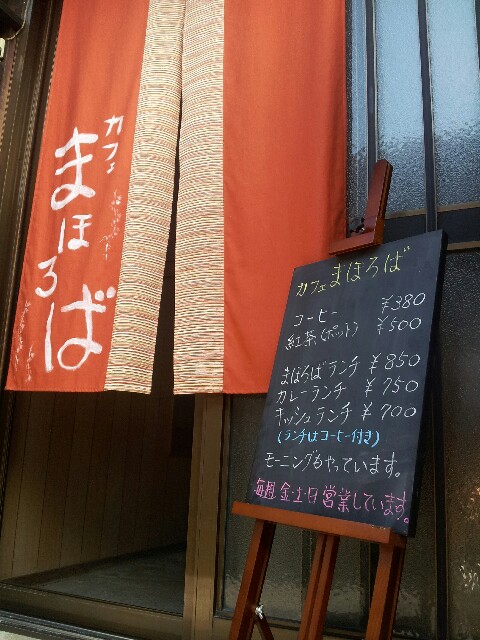 カフェ
まほろば
カフェ まほろば
コーヒー ¥380
紅茶(ポット) ¥500
まほろばランチ ¥850
カレーランチ ¥750
キッシュランチ ¥700
(ランチはコーヒー付き)
モーニングもやっています。
毎週 金・土・日 営業しています。